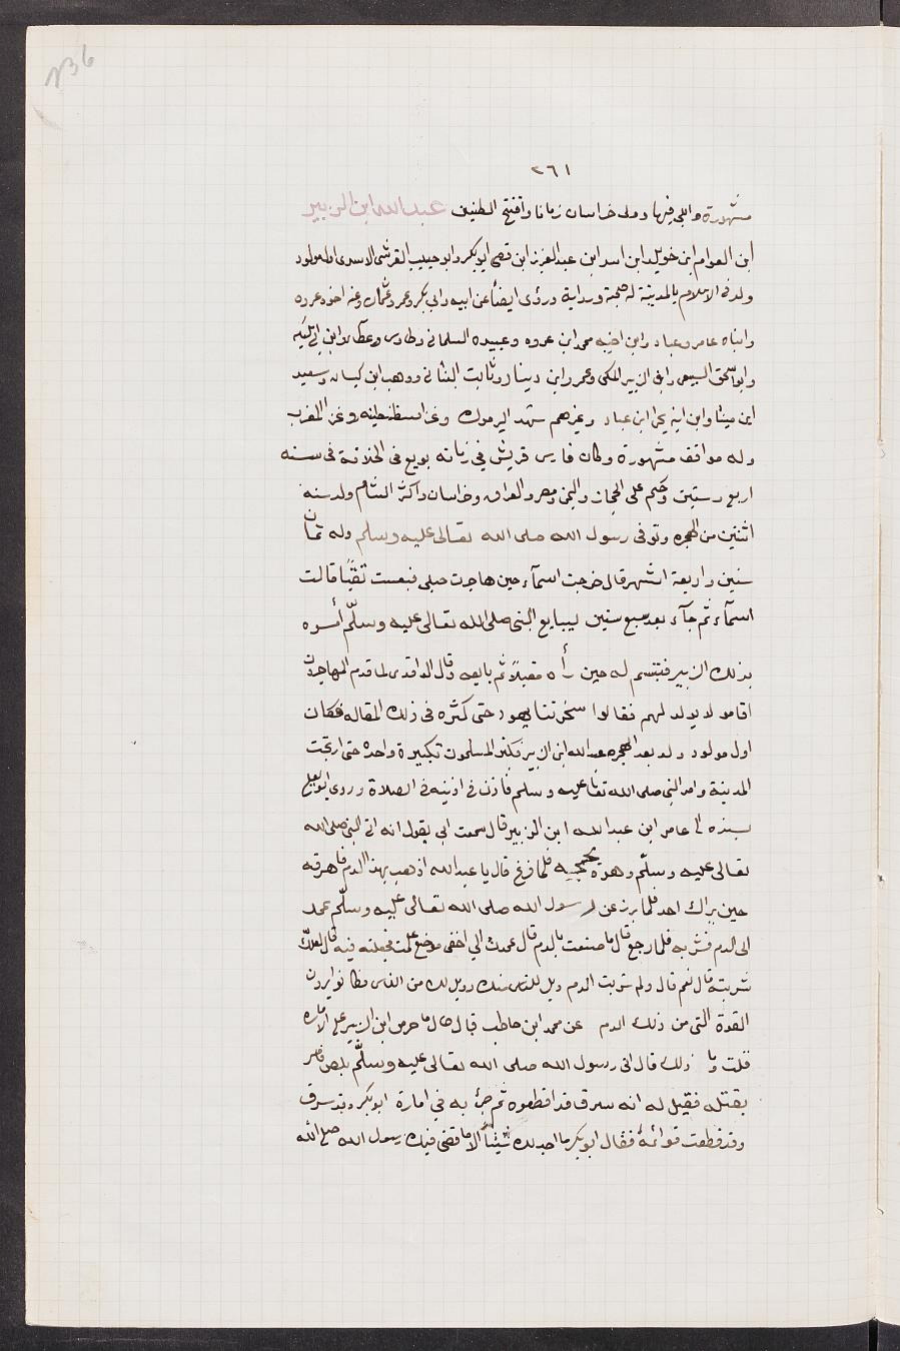 236
٢٦١
مشهورة وابلى فيها وولى خراسان زمانا وافتتح الطنيف عبدالله ابن الزبير
ابن العوام ابن خويلد ابن اسد ابن عبد العزيز ابن قصى ابو بكر وابو حبيب القرشى الاسدى اول مولود
ولد فى الاسلام بالمدينة له صحبة ورواية وروى ايضاً عن ابيه وابى بكر وعمر وعثمان وعنه اخوه عروه
وابناه عامر وعباد وابن اخيه محمد ابن عروه وعبيده السلمانى وطاوس وعطا وابن ابى مليكه
وابو اسحق السبيعى وابو الزبير المكى وعمر وابن دينار وثابت البنانى ووهب ابن كيسان وسعيد
ابن مينا وابن ابنه يحيى ابن عباد وغيرهم شهد اليرموك وغزا قسطنطينيه وغزا المغرب
وله مواقف مشهورة وكان فارس قريش فى زمانه بويع فى الخلافة فى سنه
اربع وستين وحكم على الحجاز واليمن ومصر والعراق وخراسان واكثر الشام ولد سنه
اثنتين من الهجره وتوفى رسول الله صلى الله تعالى عليه وسلم وله ثمان
سنين واربعة اشهر قال خرجت اسماء حين هاجرت حبلى فنفست بقبا قالت
اسماء ثم جاء بعد سبع سنين ليبايع النبى صلى الله تعالى عليه وسلّم أسره
بذلك الزبير فتبسم له حين رأه مقبلاً ثم بايعه وقال الواقدى لما قدم المهاجرون
اقاموا لا يولد لهم فقالوا سحرتنا يهود حتى كثره فى ذلك المقاله فكان
اول مولود ولد بعد الهجره عبد الله ابن الزبير فكبر المسلمون تكبيرة واحدة حتى ارتجت
المدينة وامر النبى صلى الله تعا عليه وسلم فاذن فى اذنيه فى الصلاة وروى ابو يعلى
بسنده الى عامر ابن عبدالله ابن الزبير قال سمعت ابى يقول انه اتى النبى صلى الله
تعالى عليه وسلّم وهو يحتجم فلما فرغ قال يا عبدالله اذهب بهذا الدم فاهرقه
حين يراك احد فلما برز عن رسول الله صلى الله تعالى عليه وسلّم عمد
الى الدم فشربه فلما رجع قال ما صنعت بالدم قال عمدت الى اخفى موضع علمت فجعلته فيه قال لعلك
شربته قال نعم قال ولم شربت الدم ويل للناس منك وويل لك من الناس فكانوا يرون
القوة التى من ذلك الدم عن محمد ابن حاطب قال طال ما حرص ابن الزبير على الاماره
قلت وما ذلك قال اتى رسول الله صلى الله تعالى عليه وسلّم بلص فامر
بقتله فقيل له انه سرق قد اقطعوه ثم جئ به فى امارة ابو بكر وقد سرق
وقد قطعت قوائمهُ فقال ابو بكر ما اجد لك شيئاً الا ما قضى فيك رسول الله صلى الله